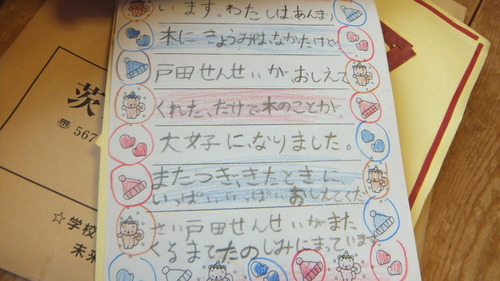 います。わたしは、あんまり
木に きょうみは、なかたけど、
戸田せんせいが、おしえて
くれた、たけで木のことが、
大好に、なりました。
またつぎ、きたときに、
いっぱいいっぱいおしえてくだ
さい戸田せんせいがまた
くるまでたのしみにまっています
茨
〠567
☆学校
未来